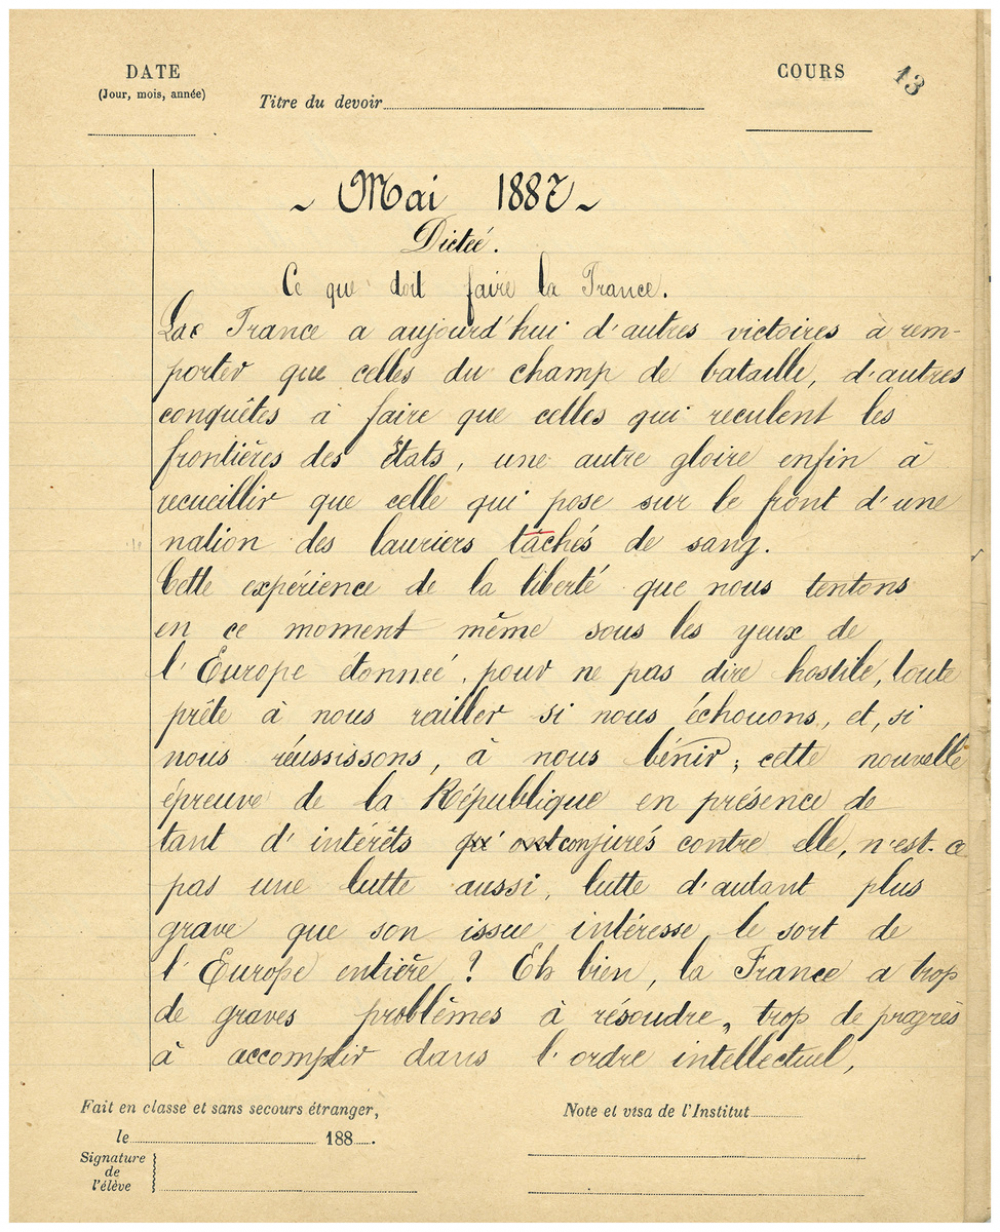 DATE
(Jour, mois, année)
Titre du devoir
COURS
13
~ Mai 1887 ~
Dictée.
Ce que doit faire la France.
La France a aujourd'hui d'autres victoires à rem-
porter que celles du champ de bataille, d'autres
conquêtes à faire que celles qui reculent les
frontières des états, une autre gloire enfin à
recueillir que celle qui pose sur le front d'une
nation des lauriers tâchés de sang.
Cette expérience de la liberté que nous tentons
en ce moment même sous les yeux de
l'Europe étonneé, pour ne pas dire hostile, toute
prête à nous railler si nous échouons, et, si
nous réussissons, à nous bénir; cette nouvelle
épreuve de la République en présence de
tant d'intérêts qui ont conjurés contre elle, n'est-ce
pas une lutte aussi, lutte d'autant plus
grave que son issue intéresse le sort de
l'Europe entière ? Eh bien, la France a trop
de graves problèmes à résoudre, trop de progrès
à accomplir dans l'ordre intellectuel,
Fait en classe et sans secours étranger,
le 188 .
Signature
de
l'élève
Note et visa de l'Institut